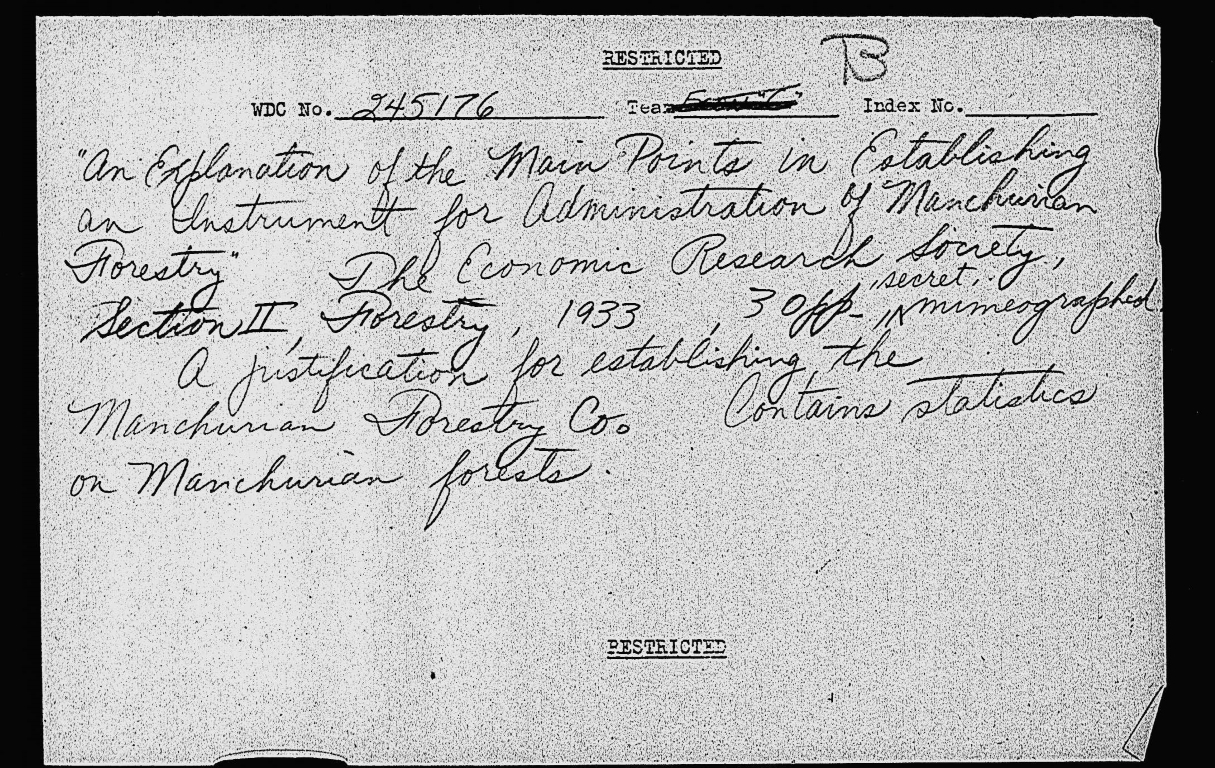 RESTRICTED
B
WDC No. 245176 Team Index No.
"An Explanation of the Main Points in Establishing
an Instrument for Administration of Manchurian
Forestry" The Economic Research Society,
secret,
Section II, Forestry, 1933, 30pp. mimeographed.
A justification for establishing the
Manchurian Forestry Co. Contains statistics
on Manchurian forests.
RESTRICTED